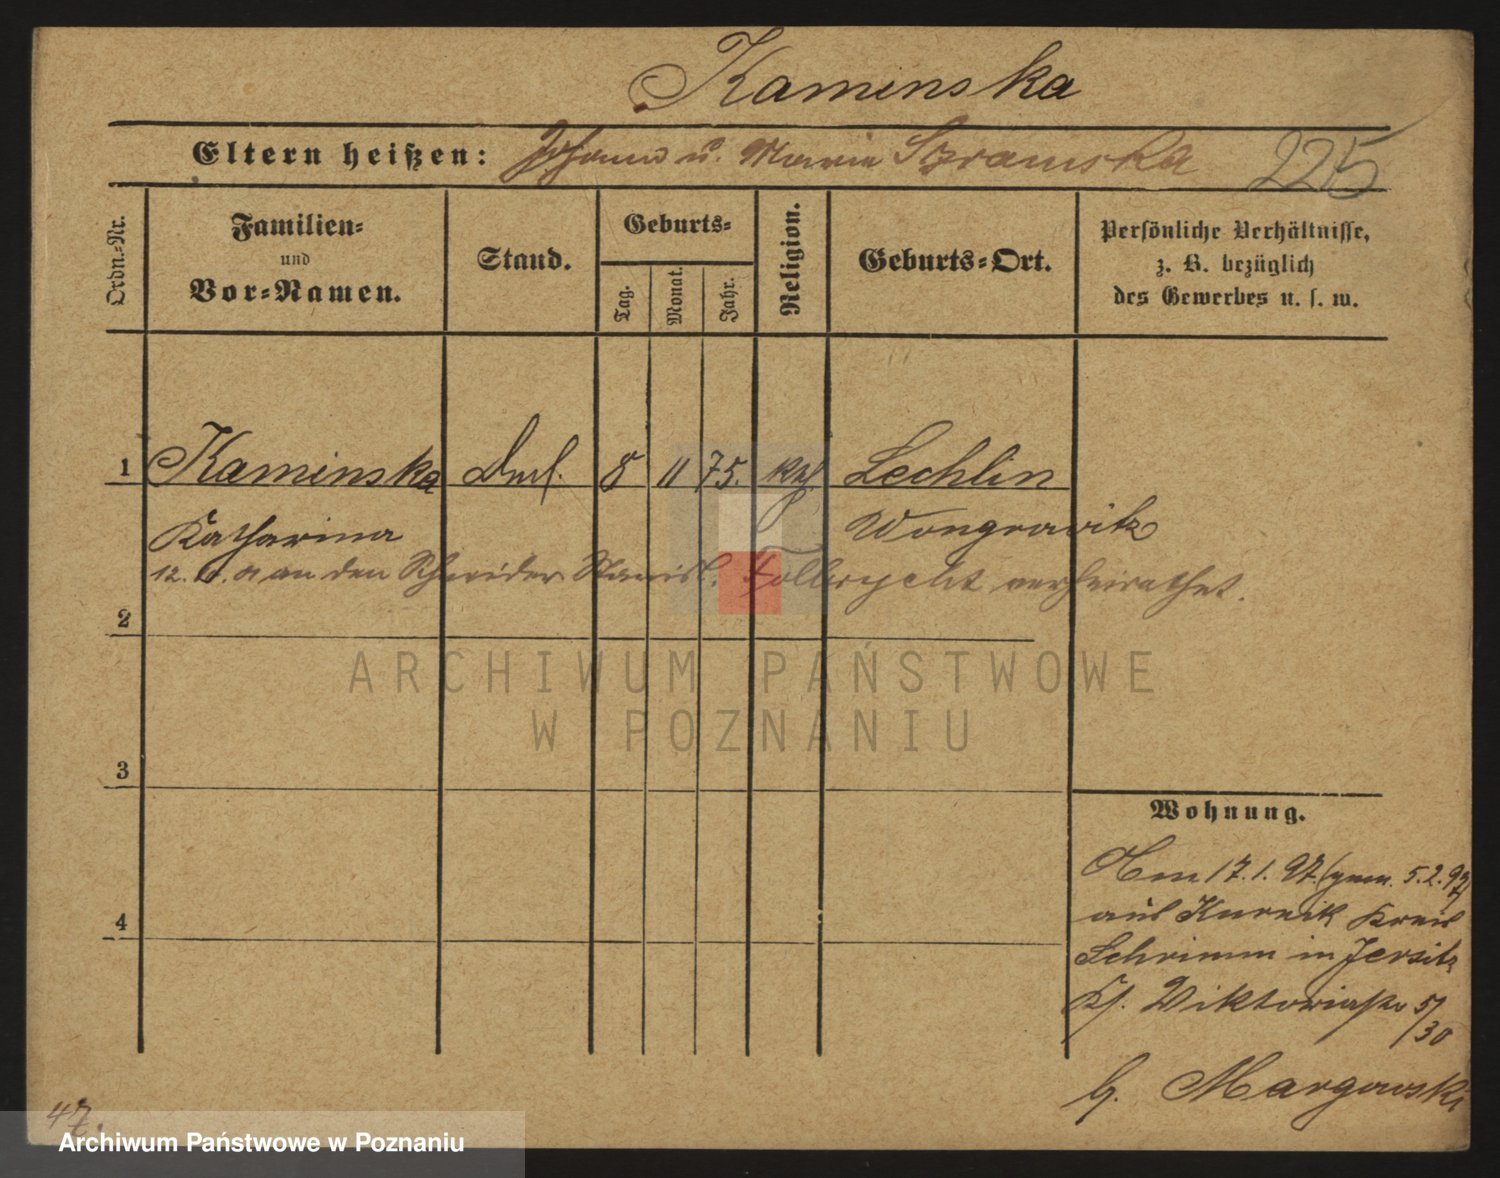 Kaminska
Eltern heißen: Johann u. Marie Szramska 225
Ordn.-Nr.
Familien-
und
Vor-Namen.
Stand.
Geburts-
Tag.
Monat.
Jahr.
Religion.
Geburts-Ort.
Persönliche Verhältnisse,
z. B. bezüglich
des Gewerbes u. s. w.
1 Kaminska 8 11 75. kth. Lechlin
Katharina Wongrowitz
12. an den Schneider Stanisl. verheirathet.
2
ARCHIWUM PAŃSTWOWE
W POZNANIU
3
Wohnung.
Am 17.1.97. (gem. 5.2.97)
aus Kurnik Kreis
4
Schrimm in Jersitz
Viktoriastr 5/30
b. Margowski
47.
Archiwum Państwowe w Poznaniu